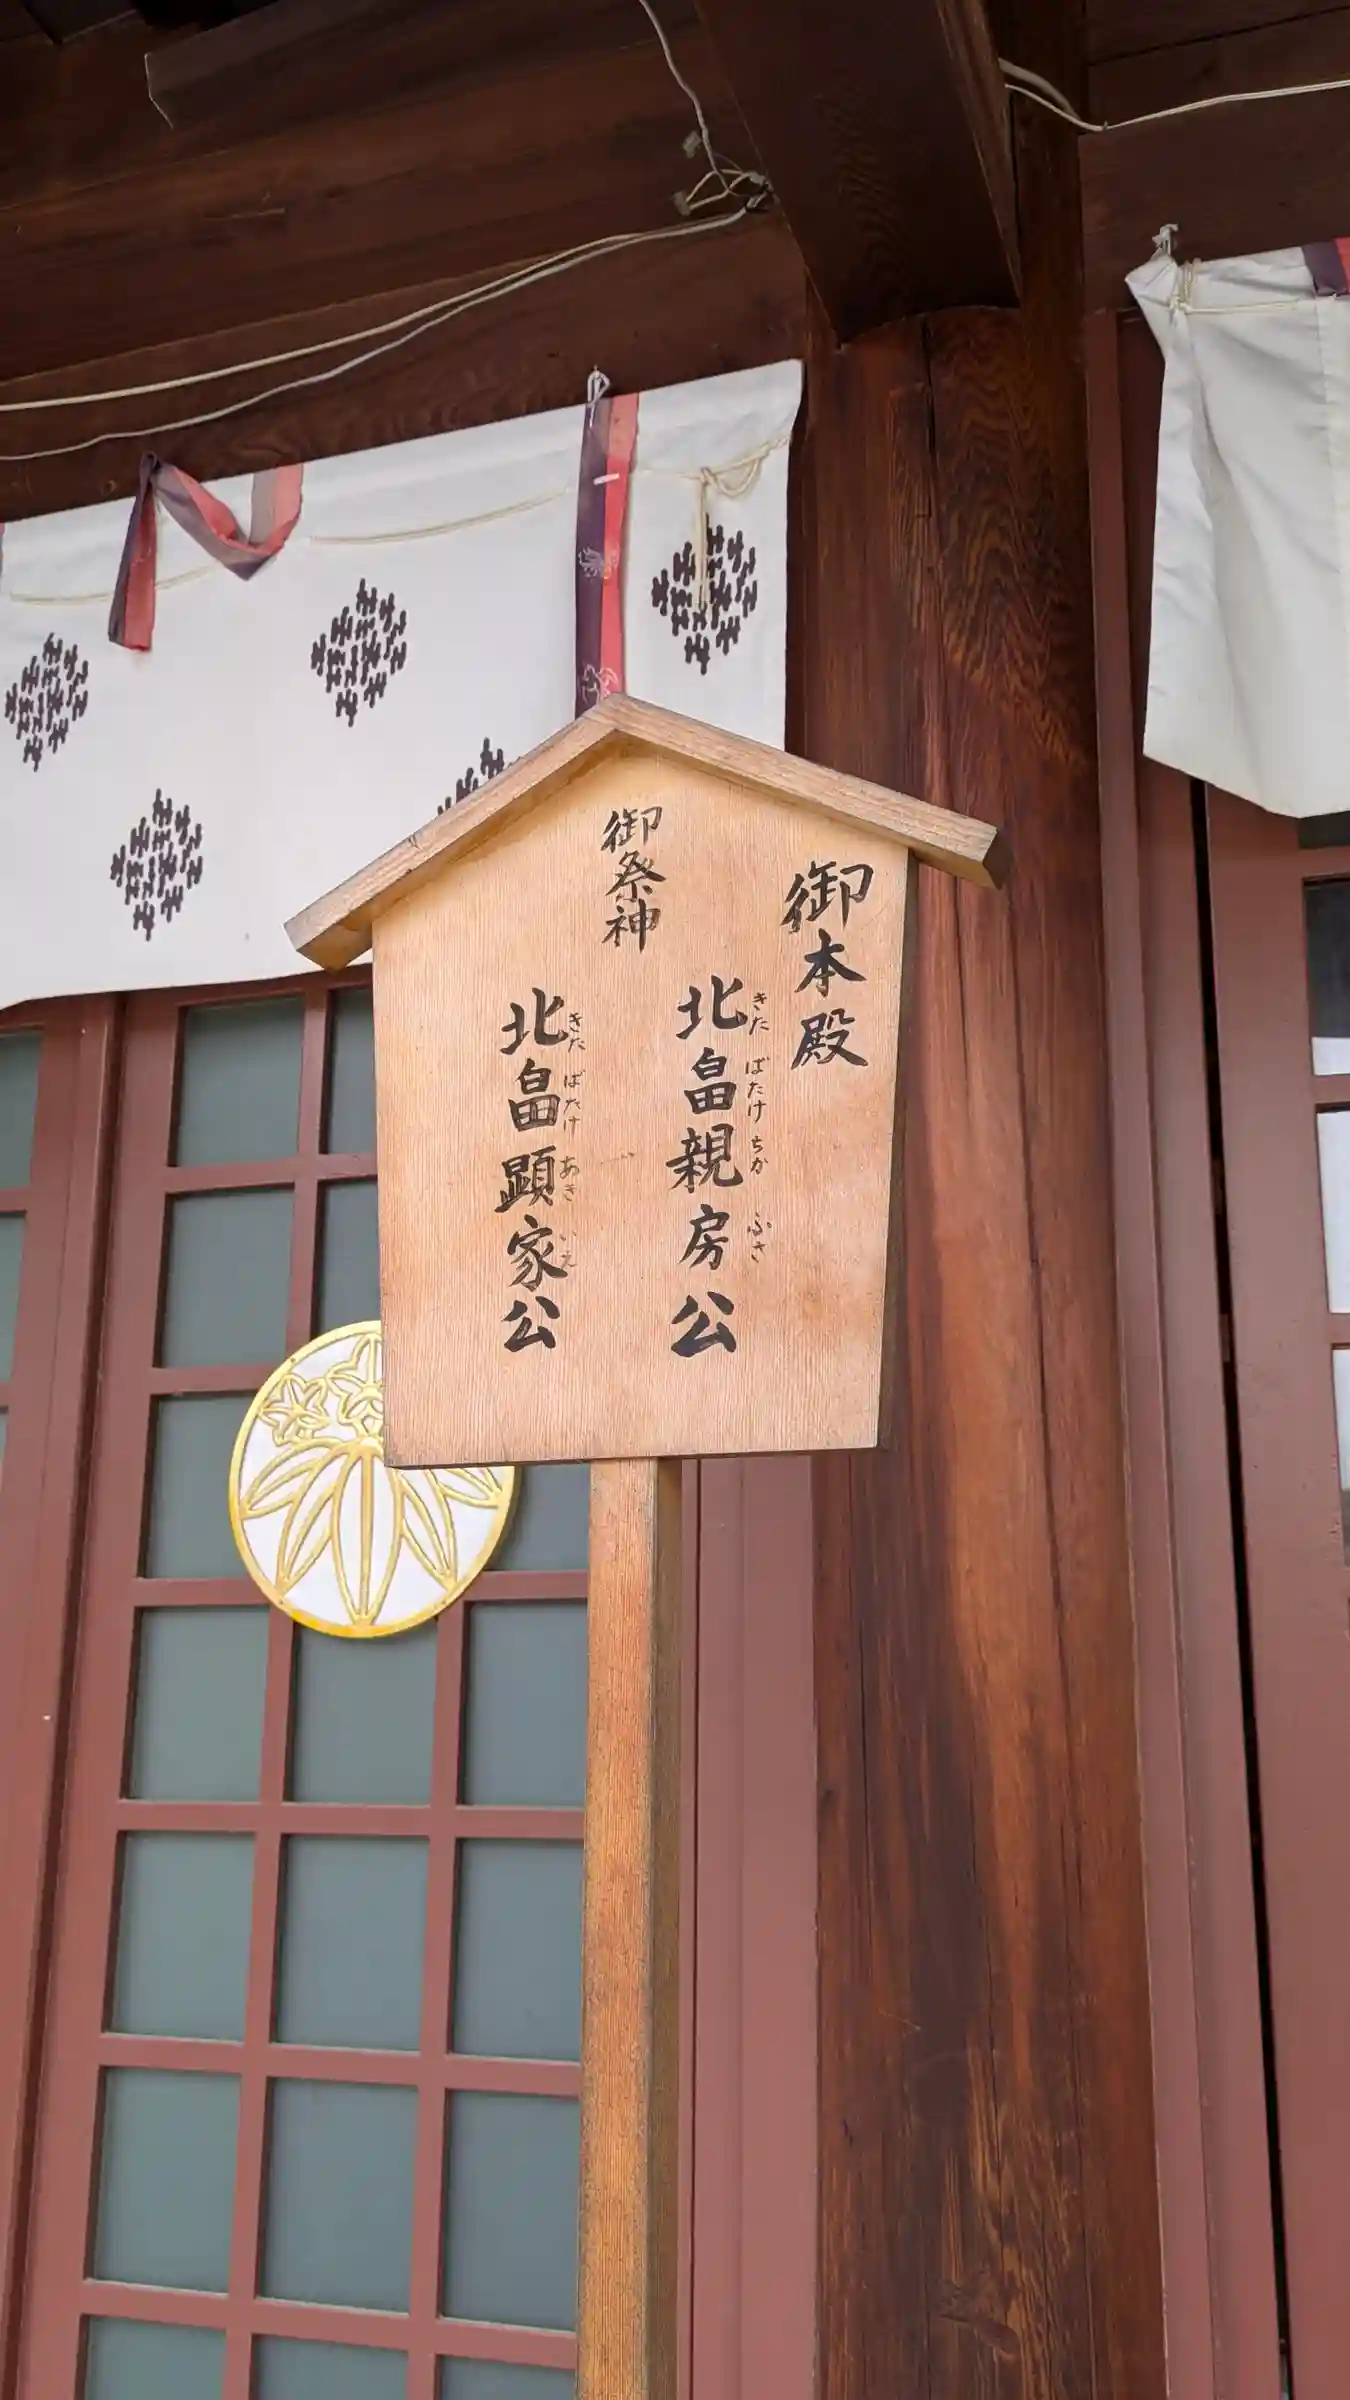 御本殿
御祭神
北畠親房公
きた ばたけ ちか ふさ
北畠顕家公
きた ばたけ あき いえ